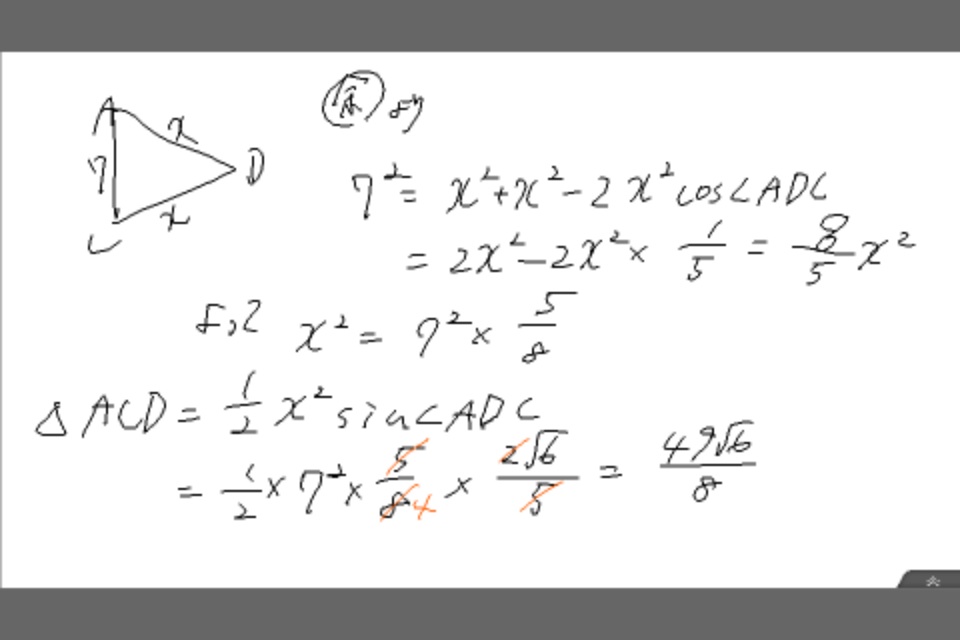 A
x
7
D
x
C
余 より
7² = x² + x² - 2x² cos∠ADC
= 2x² - 2x² × 1/5 = 8/5 x²
よって x² = 7² × 5/8
△ACD = 1/2 x² sin∠ADC
= 1/2 × 7² × 5/8 4 × 2√6/5 = 49√6/8